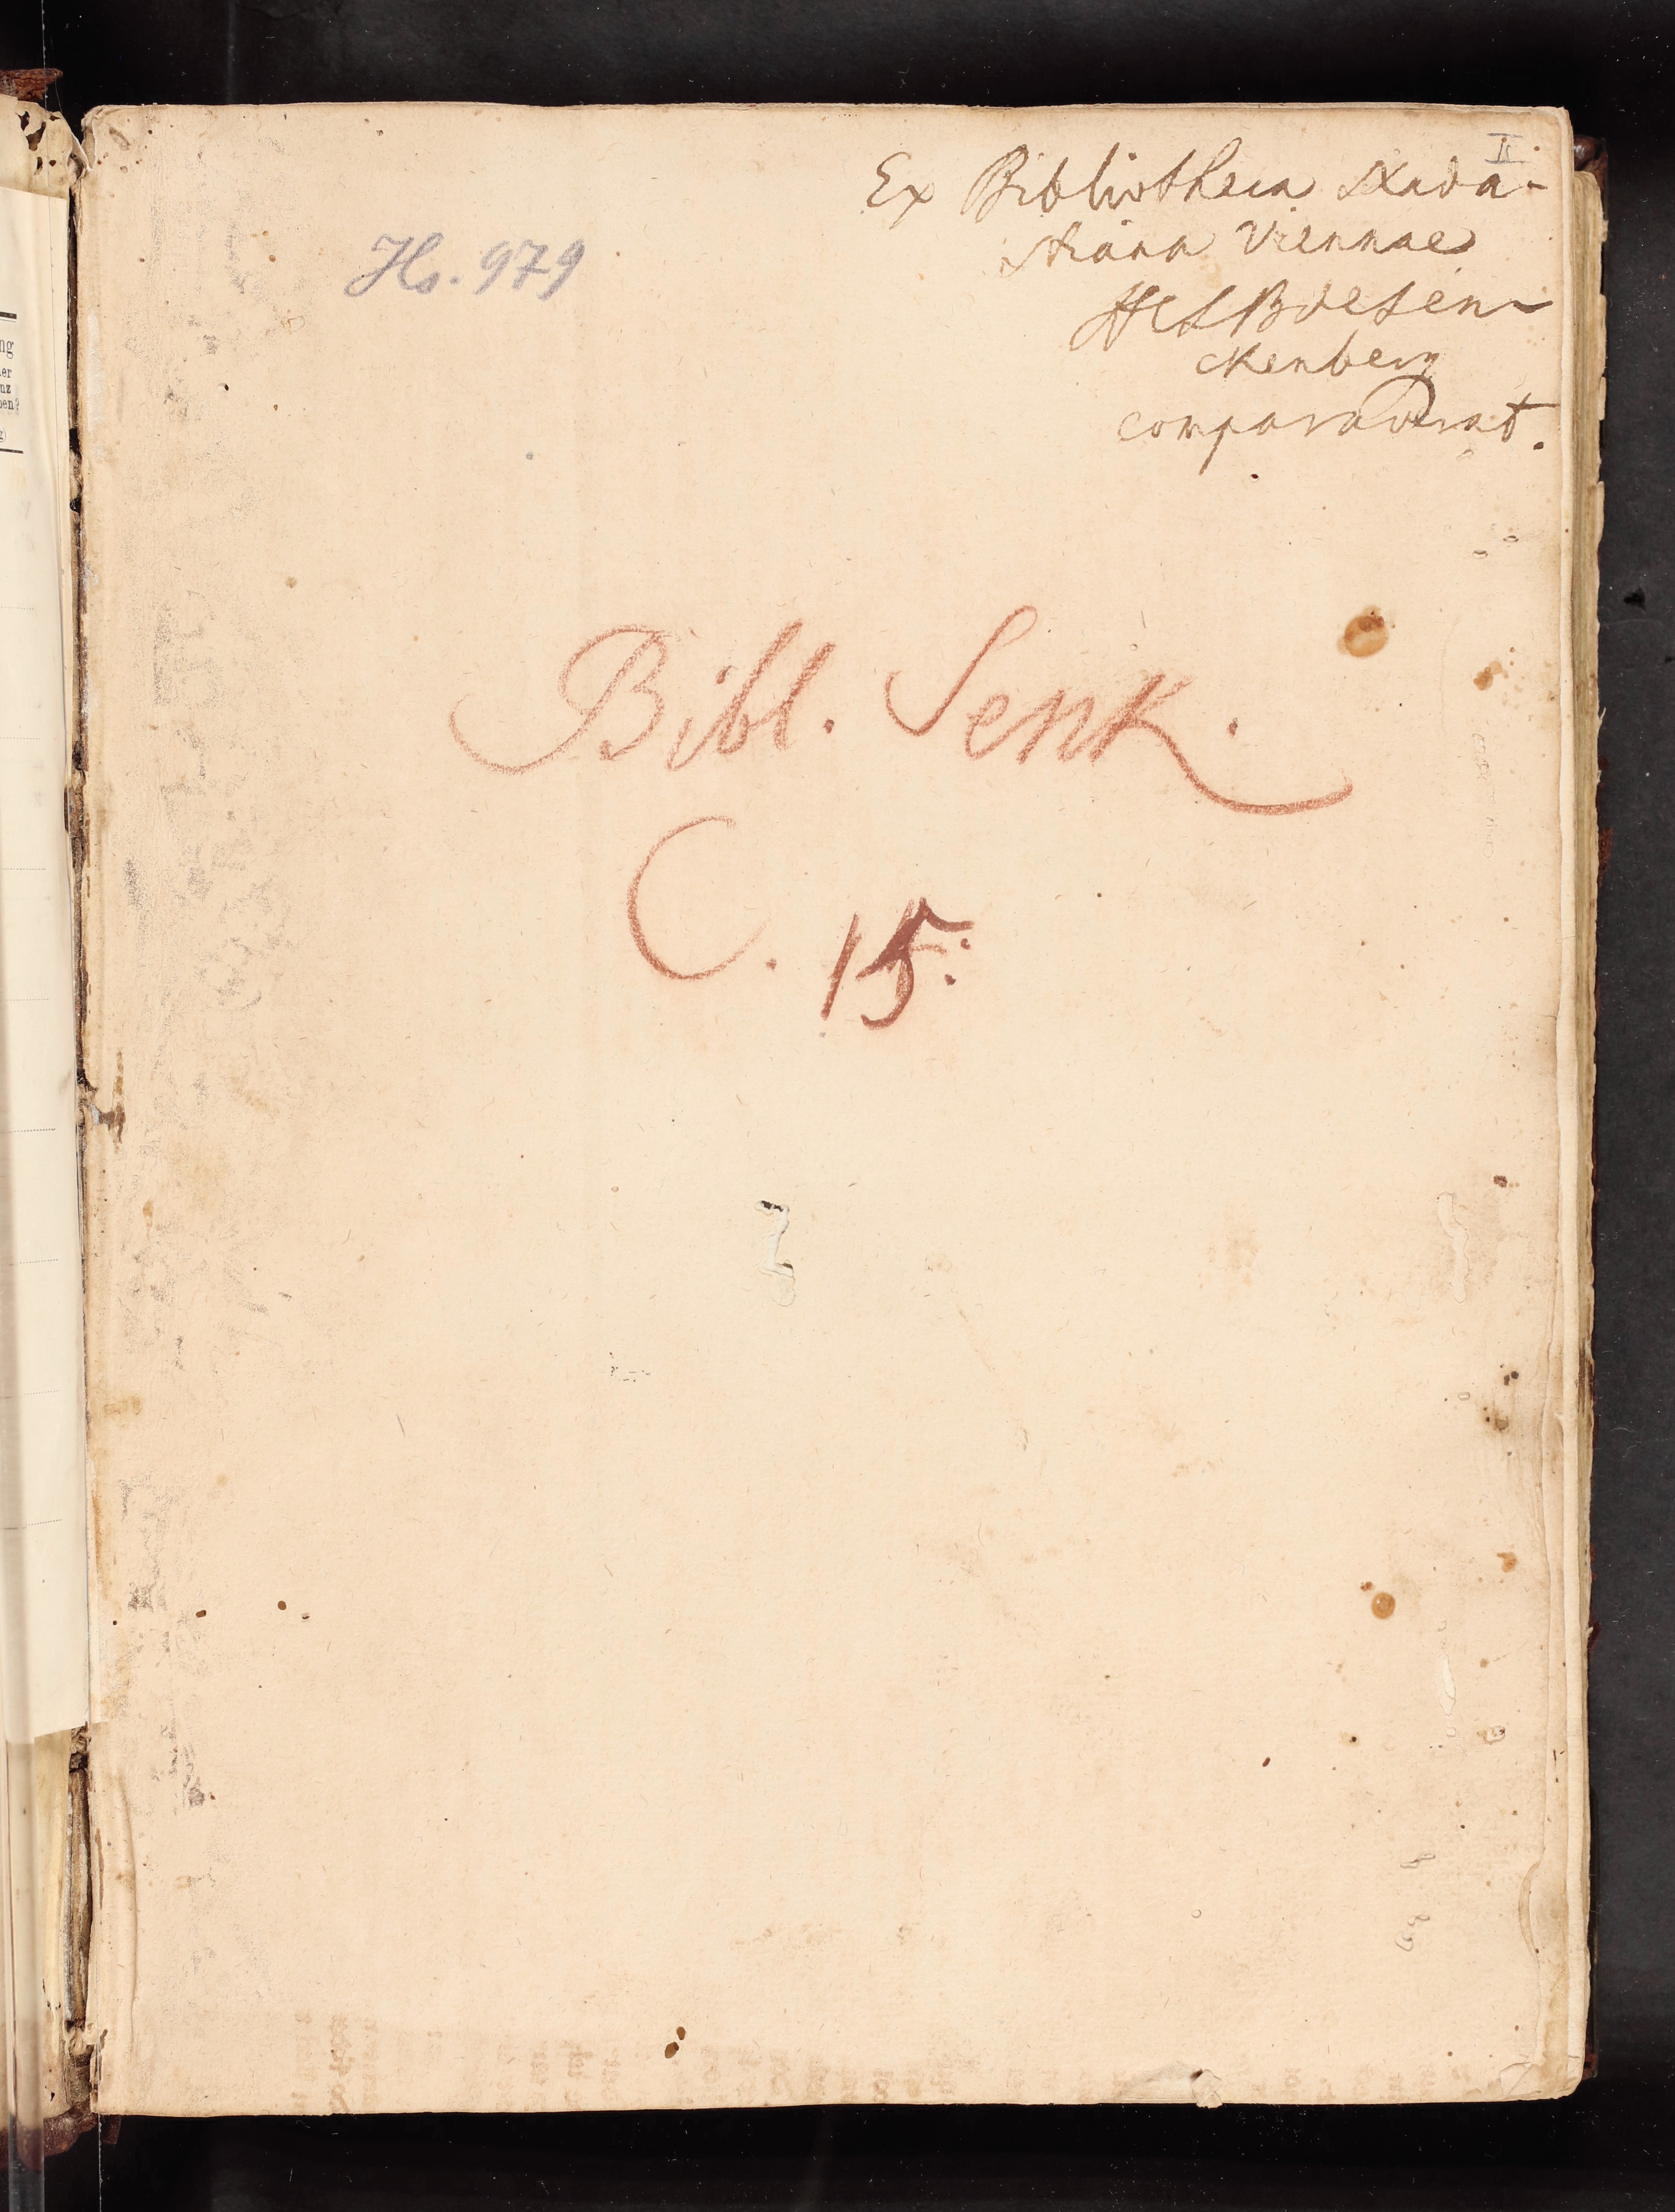 II
Ex Bibliotheca Nada-
stiana Viennae
HCLB de Sen-
ckenberg
comparaverat.
Hs. 979
Bibl. Senk.
C. 15.